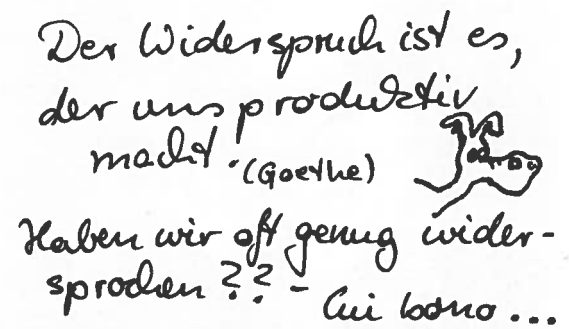 Der Widerspruch ist es,
der uns produktiv
macht. (Goethe)
Haben wir oft genug wider-
sprochen ?? -
Cui bono ...